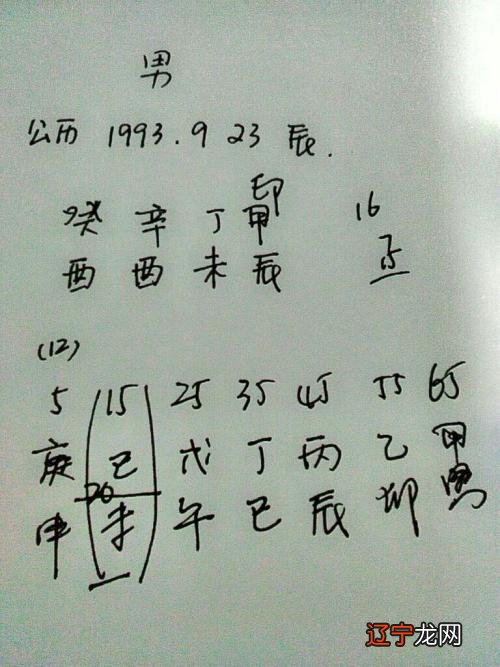 男
公历 1993.9 23 辰.
印
癸 辛 丁 甲 16
酉 酉 未 辰
(12)
5 15 25 35 45 55 65
庚 己 戊 丁 丙 乙 甲
20
申 未 午 巳 辰 卯 寅
辽宁龙网